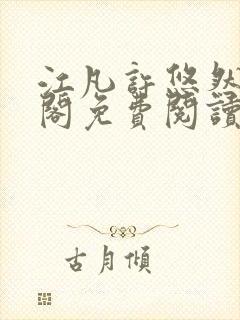 江凡許悠然
閣免費閱讀
古月傾